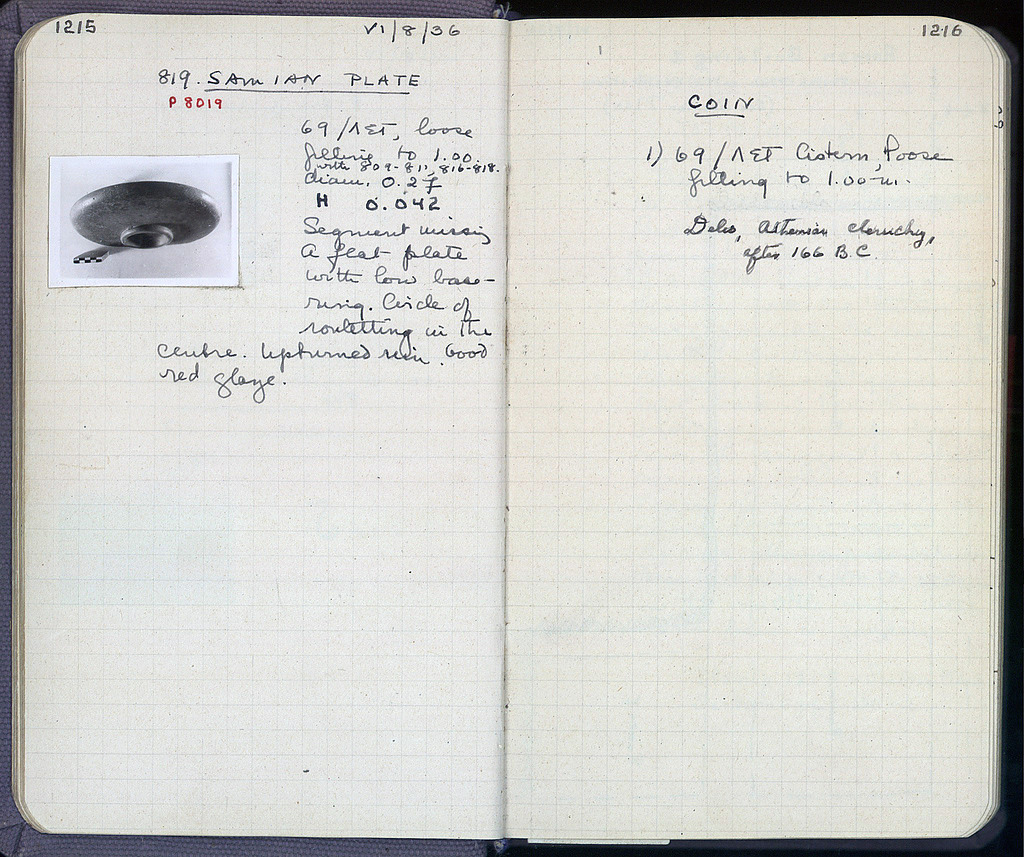 1215
VI/8/36
819. SAMIAN PLATE
P 8019
69/ΛΣΤ, loose
filling to 1.00.
with 809-811, 816-818.
Diam. 0.27
H 0.042
Segment missing
A flat plate
with low base-
ring. Circle of
rouletting in the
centre. Upturned rim. Good
red glaze.
1216
COIN
1) 69/ΛΣΤ Cistern, loose
filling to 1.00 m.
Delos, Athenian cleruchy,
after 166 B.C.